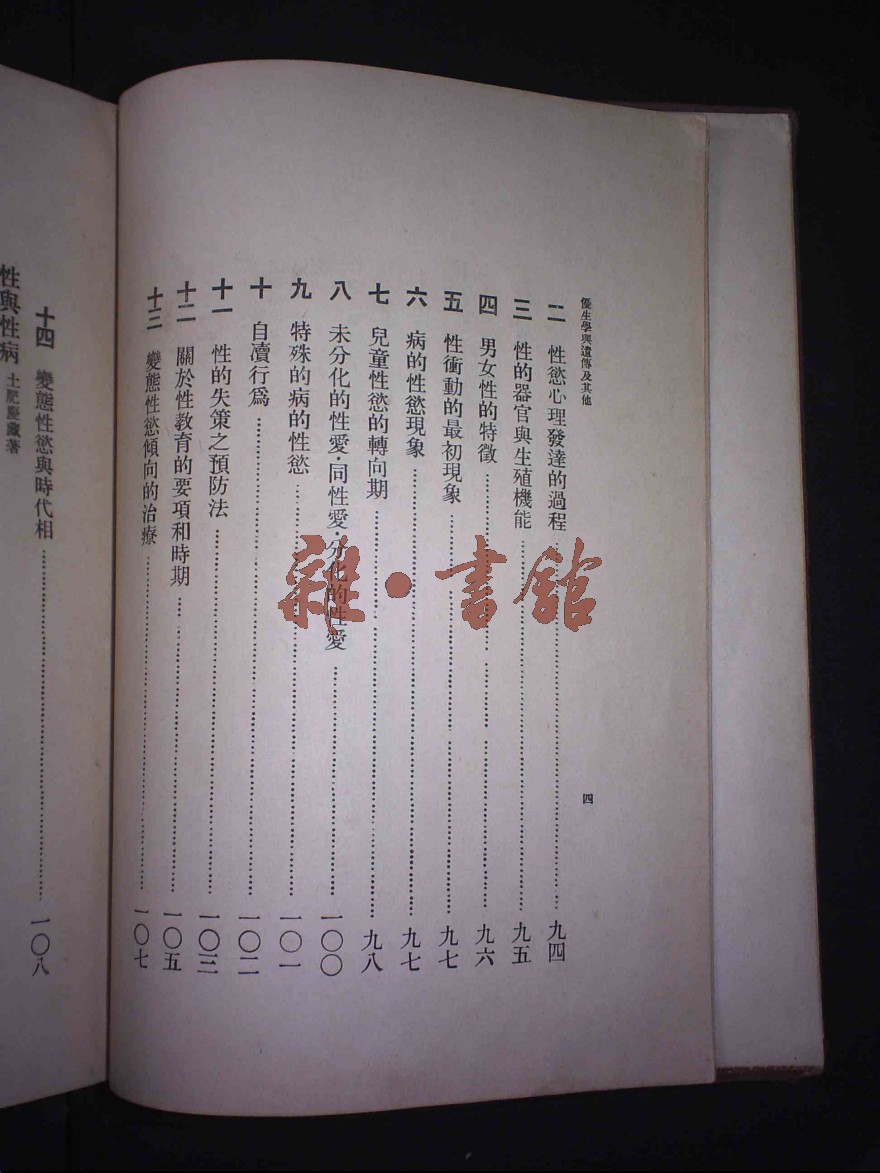 優生學與遺傳及其他
四
二 性慾心理發達的過程……九四
三 性的器官與生殖機能……九五
四 男女性的特徵……九六
五 性衝動的最初現象……九七
六 病的性慾現象……九七
七 兒童性慾的轉向期……九八
八 未分化的性愛·同性愛·分化的性愛……一〇〇
九 特殊的病的性慾……一〇一
十 自瀆行爲……一〇二
十一 性的失策之預防法……一〇三
十二 關於性教育的要項和時期……一〇五
十三 變態性慾傾向的治療……一〇七
十四 變態性慾與時代相……一〇八
性與性病 土肥慶藏著
雜·書館